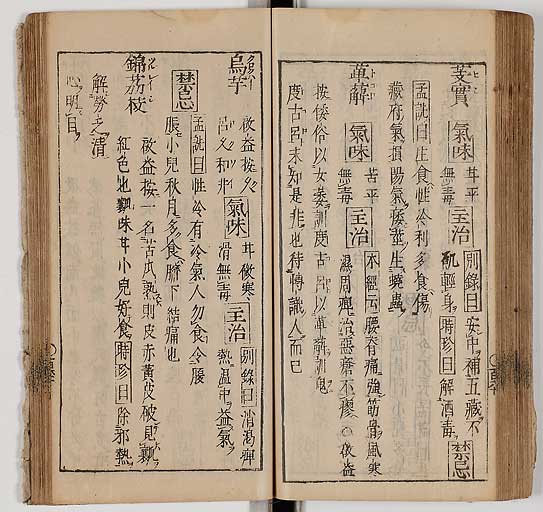 芰實 氣味 甘平無毒 主治 別錄曰安中補五臓不飢輕身 時珍曰解酒毒 禁忌
孟詵曰生食性冷利多食傷
臓府氣損陽氣痿莖生蟯蟲
萆薢 氣味 苦平無毒 主治 本經云腰脊痛強筋骨風寒濕周痺治惡瘡不瘳○俊益
按倭俗以女萎訓度古呂以萆薢訓鬼
度古呂未知是非也待博識人而已
烏芋 俊益按 呂 和井 氣味 甘微寒滑無毒 主治 別錄曰消渇痺熱温中益氣
禁忌 孟詵曰性冷有冷氣人勿食令腹
脹小兒秋月多食臍下結痛也
錦茘枝 俊益按一名苦瓜熟則皮赤黃皮破見瓤
紅色也瓤味甘小兒好食 時珍曰除邪熱
解勞乏清
心明目